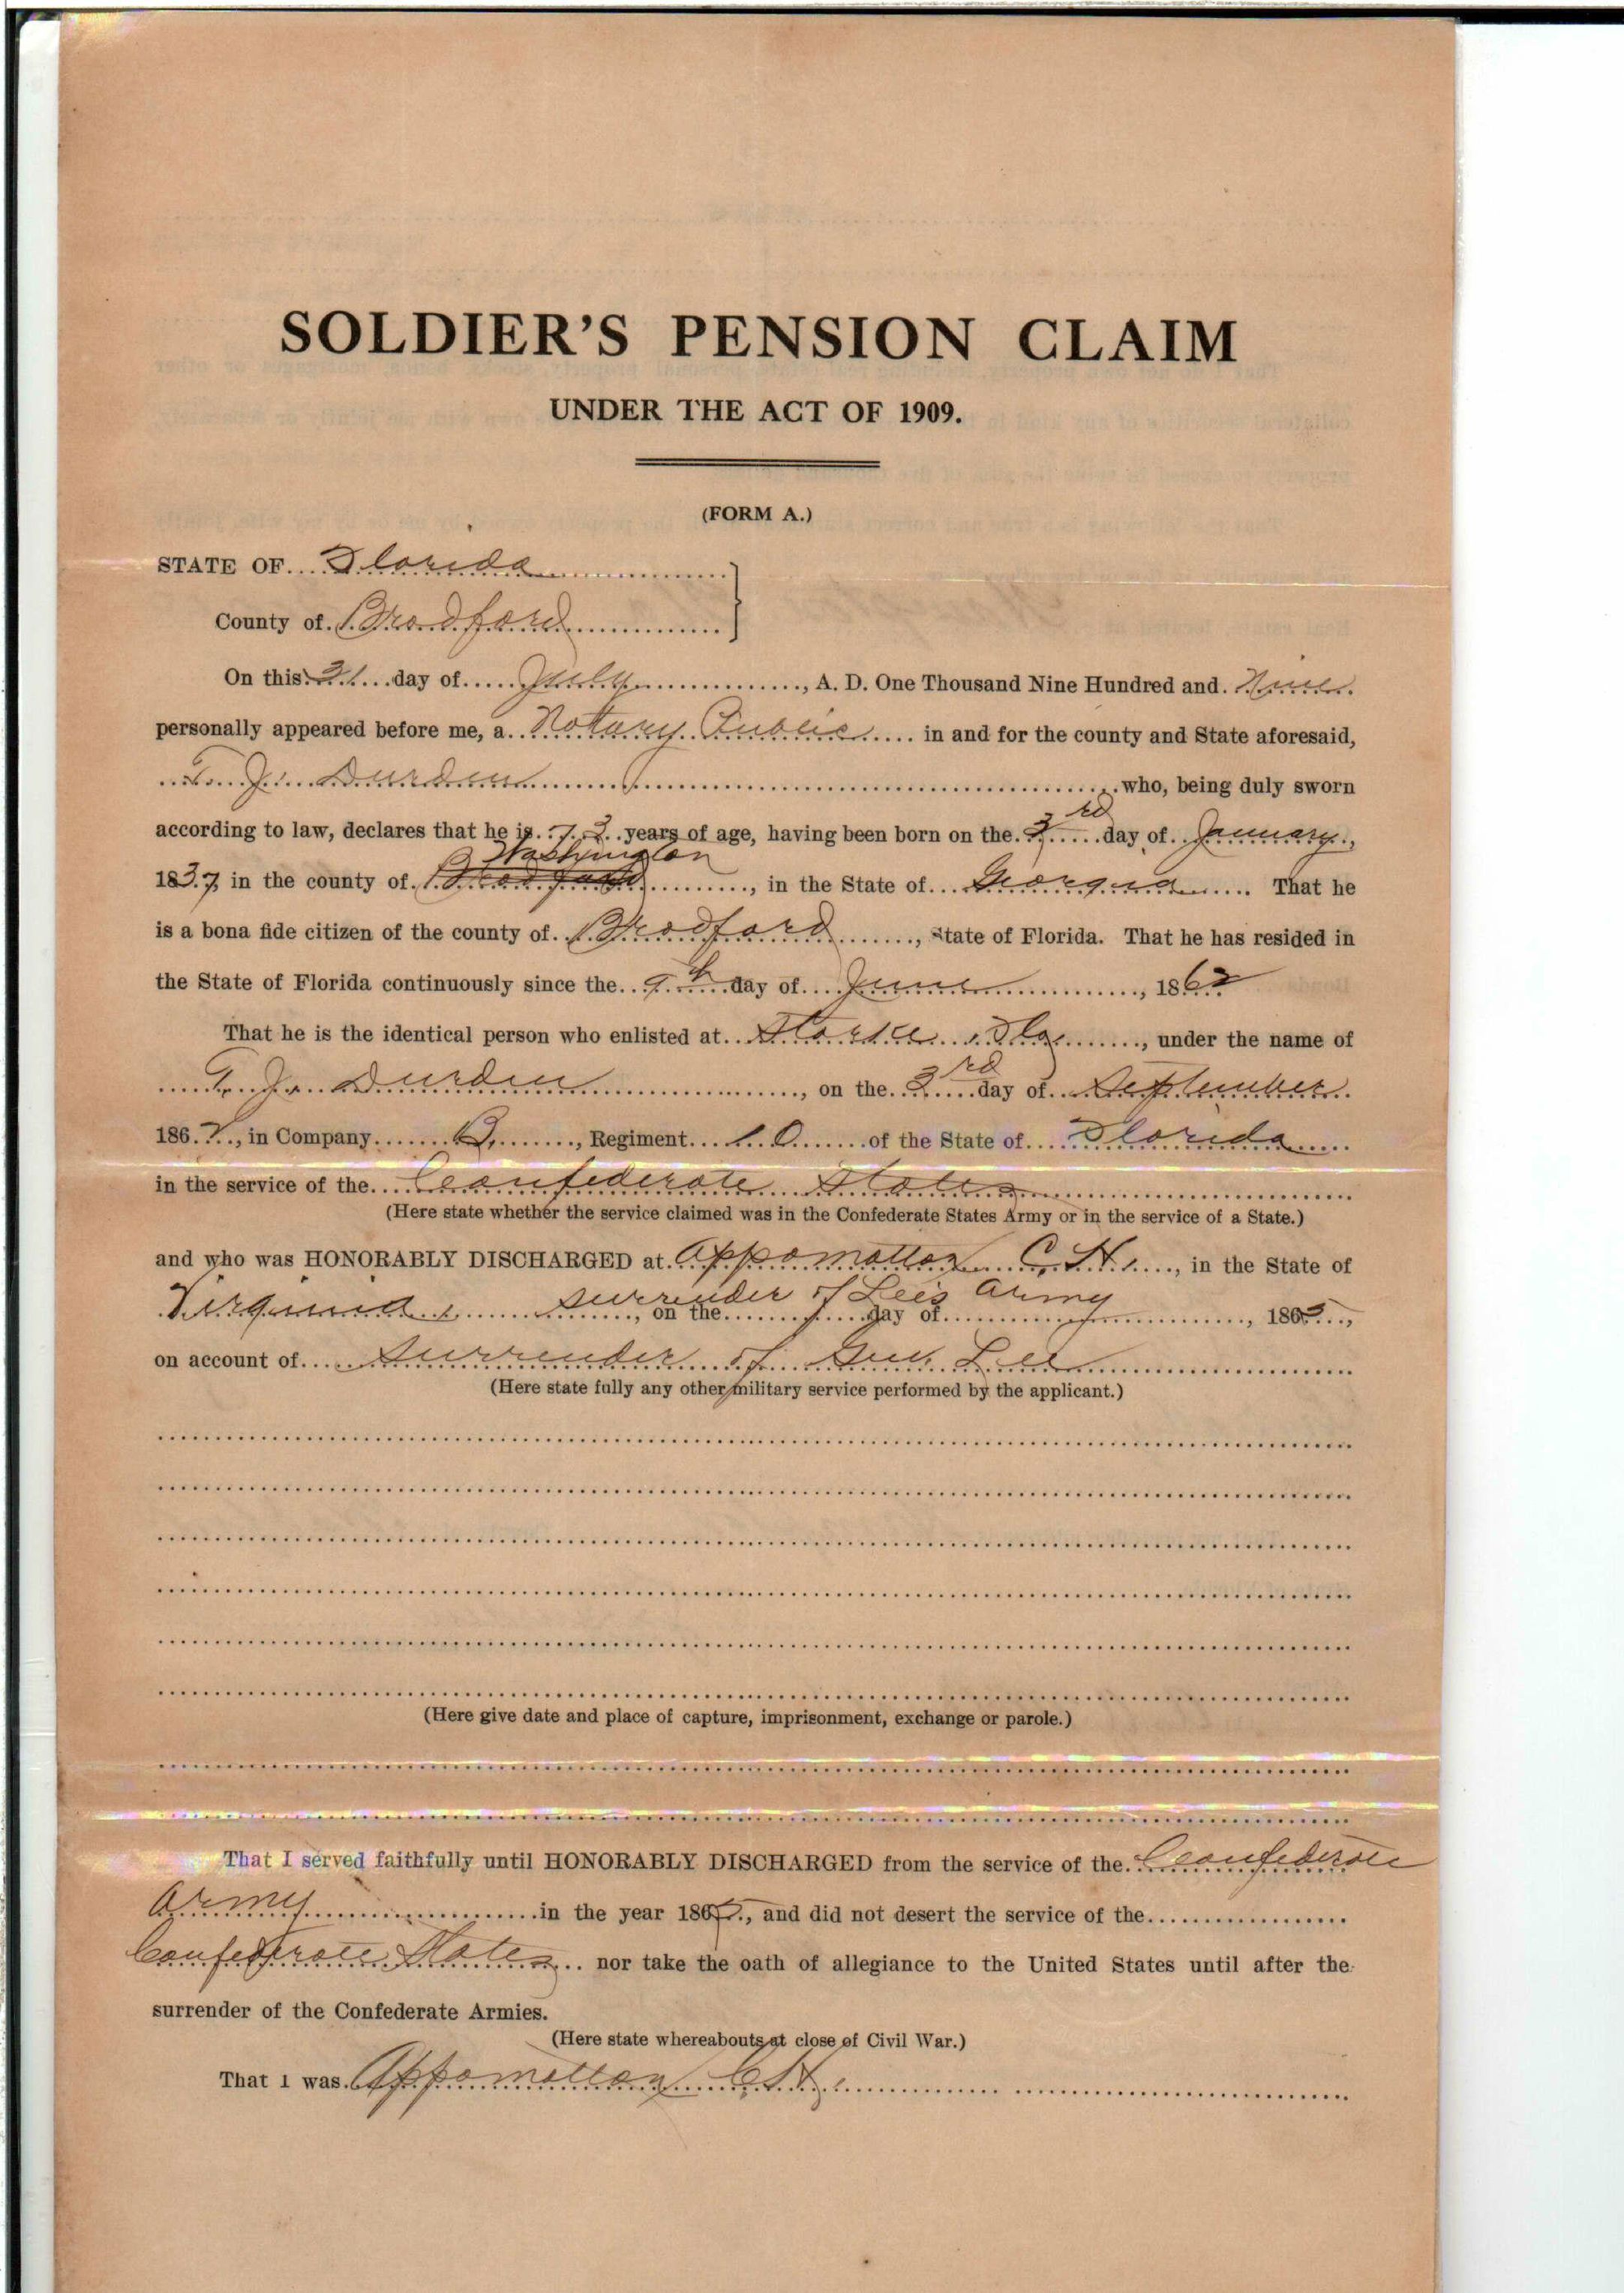 SOLDIER'S PENSION CLAIM
UNDER THE ACT OF 1909.
(FORM A.)
STATE OF Florida
County of Bradford
On this 31 day of July, A. D. One Thousand Nine Hundred and Nine
personally appeared before me, a Notary Public in and for the county and State aforesaid,
T. J. Durden who, being duly sworn
according to law, declares that he is 73 years of age, having been born on the 3rd day of January,
Washington
1837, in the county of Bradford, in the State of Georgia. That he
is a bona fide citizen of the county of Bradford, State of Florida. That he has resided in
the State of Florida continuously since the 9th day of June, 1862
That he is the identical person who enlisted at Starke Fla, under the name of
T. J. Durden, on the 3rd day of September
1862, in Company B, Regiment 10 of the State of Florida
in the service of the Confederate States
(Here state whether the service claimed was in the Confederate States Army or in the service of a State.)
and who was HONORABLY DISCHARGED at Appomattox C. H., in the State of
Virginia, surrender of Lee's Army, on the day of, 1865,
on account of surrender of Gen. Lee
(Here state fully any other military service performed by the applicant.)
(Here give date and place of capture, imprisonment, exchange or parole.)
That I served faithfully until HONORABLY DISCHARGED from the service of the Confederate
Army in the year 1865, and did not desert the service of the
Confederate States nor take the oath of allegiance to the United States until after the
surrender of the Confederate Armies.
(Here state whereabouts at close of Civil War.)
That I was Appomattox C. H.